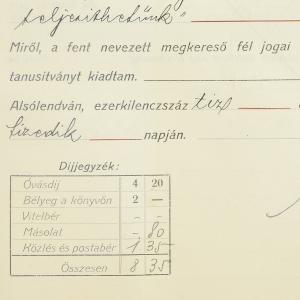 teljesithetünk"
Miről, a fent nevezett megkereső fél jogai
tanusitványt kiadtam.
Alsólendván, ezerkilenczszáz tiz
tizedik napján.
Díjjegyzék:
Óvásdíj 4 20
Bélyeg a könyvön 2 —
Vitelbér – –
Másolat – 80
Közlés és postabér 1 35
Összesen 8 35